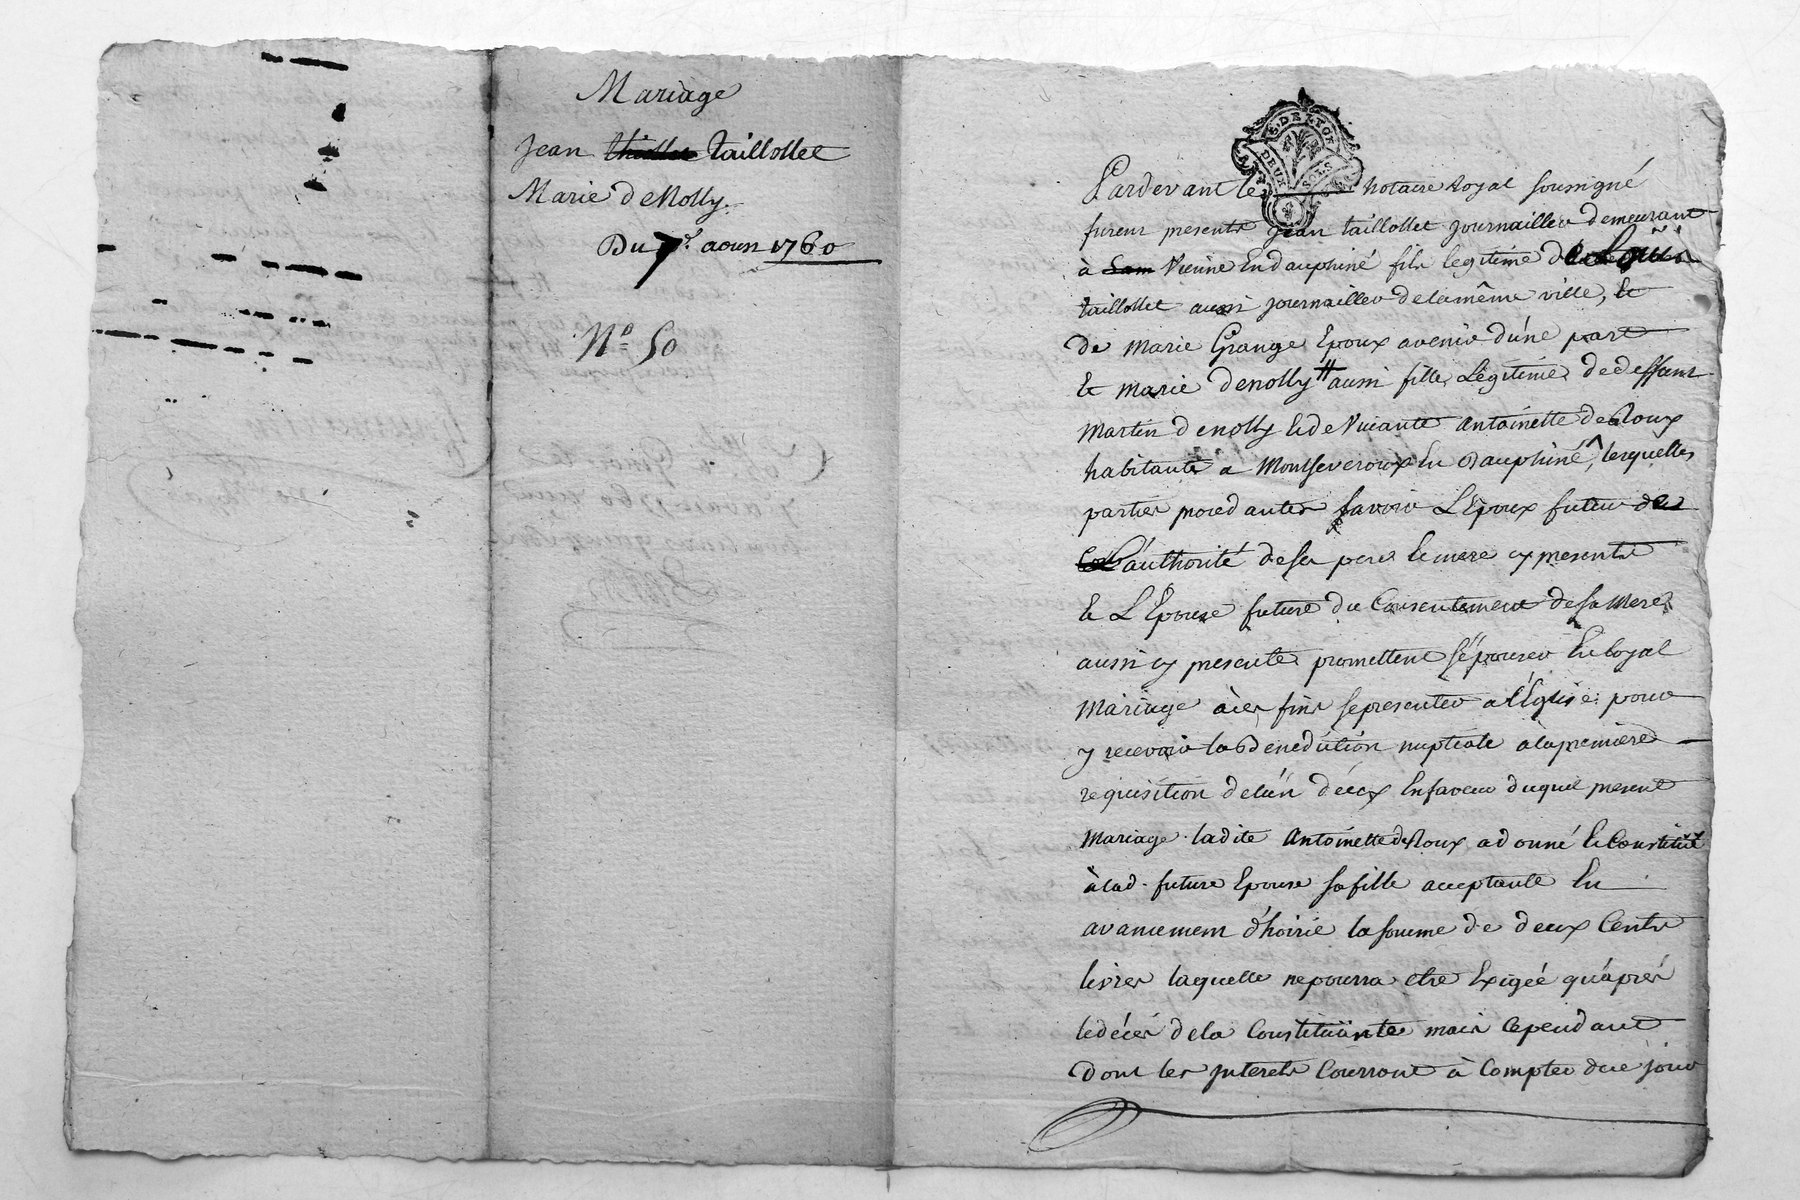 Mariage
Jean taillollet
Marie deNolly.
Du 7e. aoust 1760
No 50
G. DE LYON
DEUX SOLS
Pardevant le notaire Royal soussigné
furent presents Jean taillollet journaillier demeurant
à Vienne En dauphiné fils legitime de Loüis
taillollet aussi journaillier de la même ville, et
de Marie Grange Epoux avenir d'une part
Et Marie denolly aussi fille Légitime de deffunt
Martin denolly et de Vivante Antoinette de Roux
habitante a Montseveroux En Dauphiné, lesquelles
parties procedantes savoir L'Epoux futur de
L'authorité de ses pere et mere cy presents
Et L'Epouse future du Consentement de sa Mere
aussi cy presente promettent s'épouser En loyal
Mariage à ces fins se presenter a l'Eglise pour
y recevoir la Benediction nuptiale a la premiere
requisition de l'un d'eux En faveur duquel present
Mariage ladite Antoinette de Roux a donné et Constitué
à lad. future Epouse sa fille acceptante En
avancement d'hoirie la somme de deux Cents
livres laquelle ne pourra etre Exigée qu'après
le décés de la Constituante mais Cependant
Dont les Interets Courront à Compter du jour